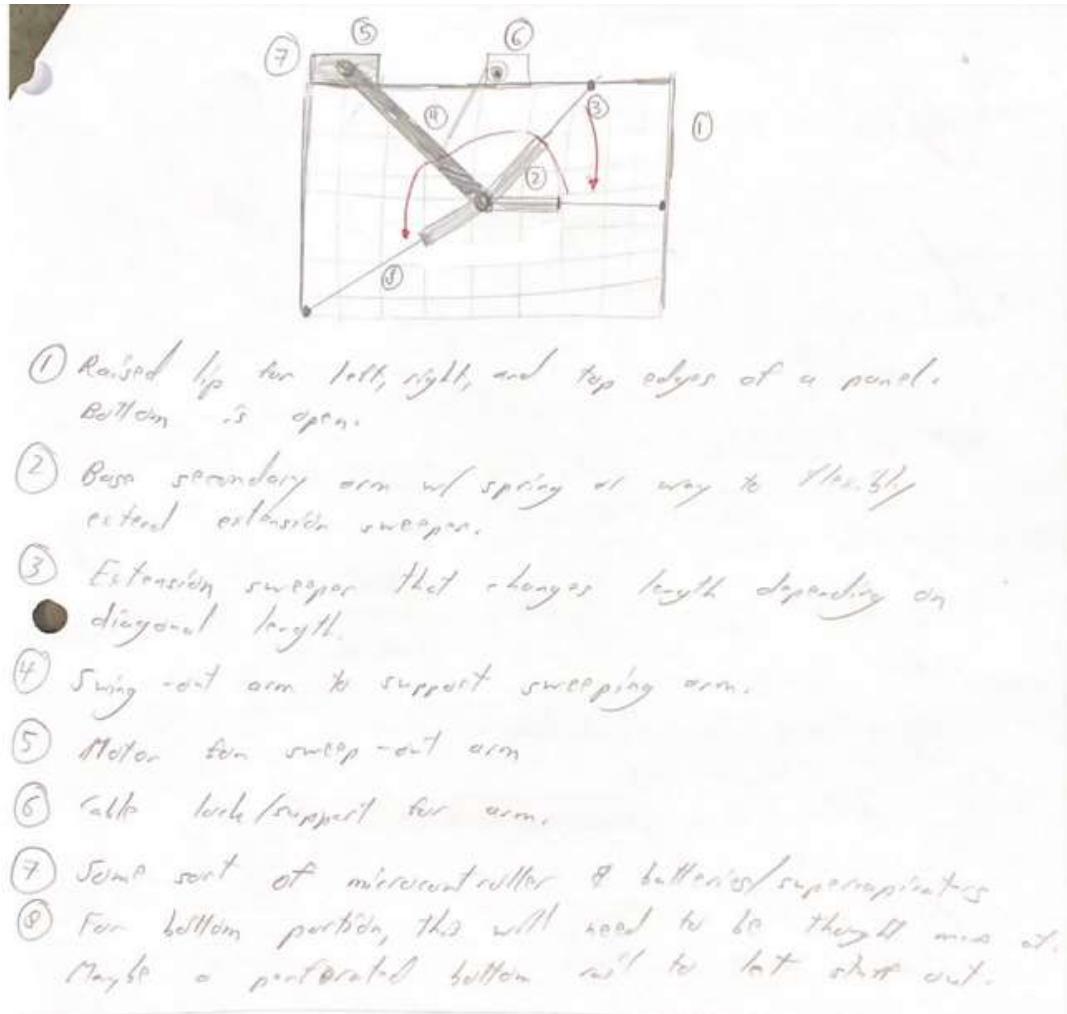 ⑤ ⑥
⑦
④ ③ ①
②
⑧
① Raised lip for left, right, and top edges of a panel.
Bottom is open.
② Base secondary arm w/ spring or way to flexibly
extend extension sweeper.
③ Extension sweeper that changes length depending on
diagonal length.
④ Swing-out arm to support sweeping arm.
⑤ Motor for sweep-out arm
⑥ Cable lock/support for arm.
⑦ Some sort of microcontroller & batteries/supercapacitors
⑧ For bottom portion, this will need to be thought more of.
Maybe a perforated bottom rail to let stuff out.